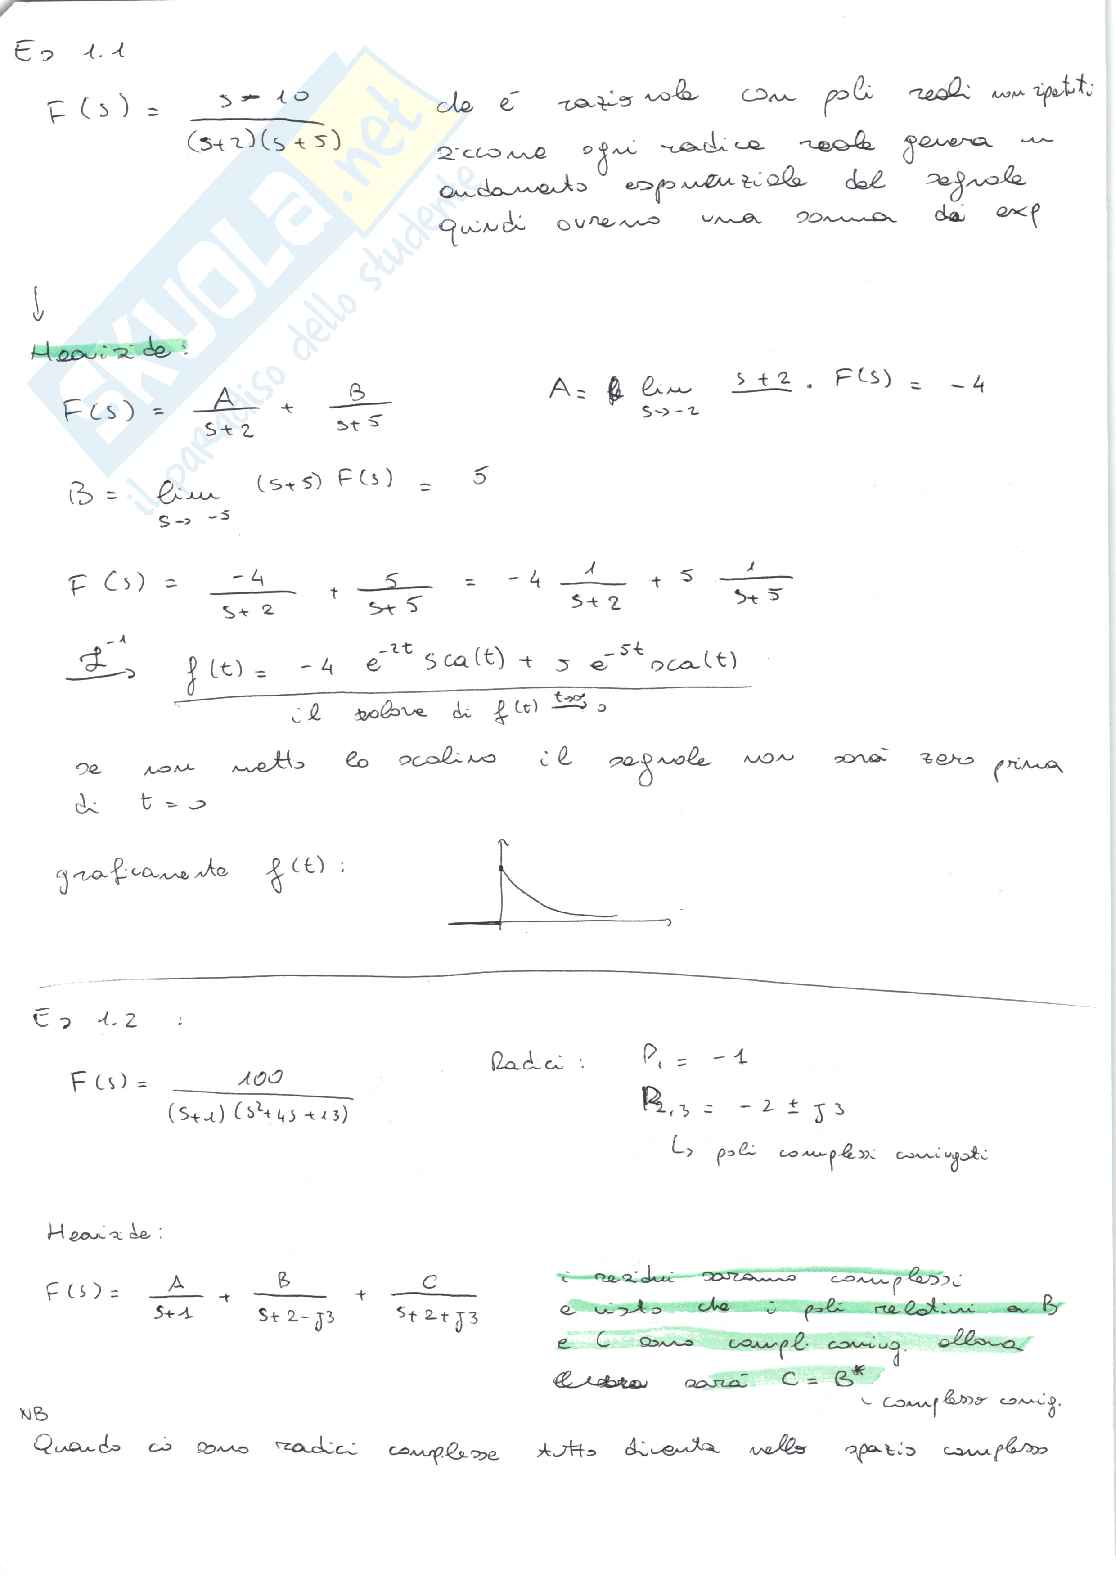 Es 1.1
F(s) = s-10 / (s+2)(s+5)
che è razionale con poli reali non ripetuti
siccome ogni radice reale genera un
andamento esponenziale del segnale
quindi avremo una somma di exp
↓
Heaviside:
F(s) = A/(s+2) + B/(s+5)
A = lim s→-2 s+2 · F(s) = -4
B = lim s→-5 (s+5) F(s) = 5
F(s) = -4/(s+2) + 5/(s+5) = -4 1/(s+2) + 5 1/(s+5)
ℒ⁻¹→ f(t) = -4 e^-2t sca(t) + 5 e^-5t sca(t)
il valore di f(t) t→∞ 0
se non metto lo scalino il segnale non sarà zero prima
di t=0
graficamente f(t):
Es 1.2 :
F(s) = 100 / (s+1)(s²+4s+13)
Radici: P₁ = -1
P₂,₃ = -2 ± j3
↳ poli complessi coniugati
Heaviside:
F(s) = A/(s+1) + B/(s+2-j3) + C/(s+2+j3)
i residui saranno complessi
e visto che i poli relativi a B
e C sono compl. coniug. allora
sarà C = B*
complesso coniug.
NB
Quando ci sono radici complesse tutto diventa nello spazio complesso
SKUOLA.net
il paradiso dello studente